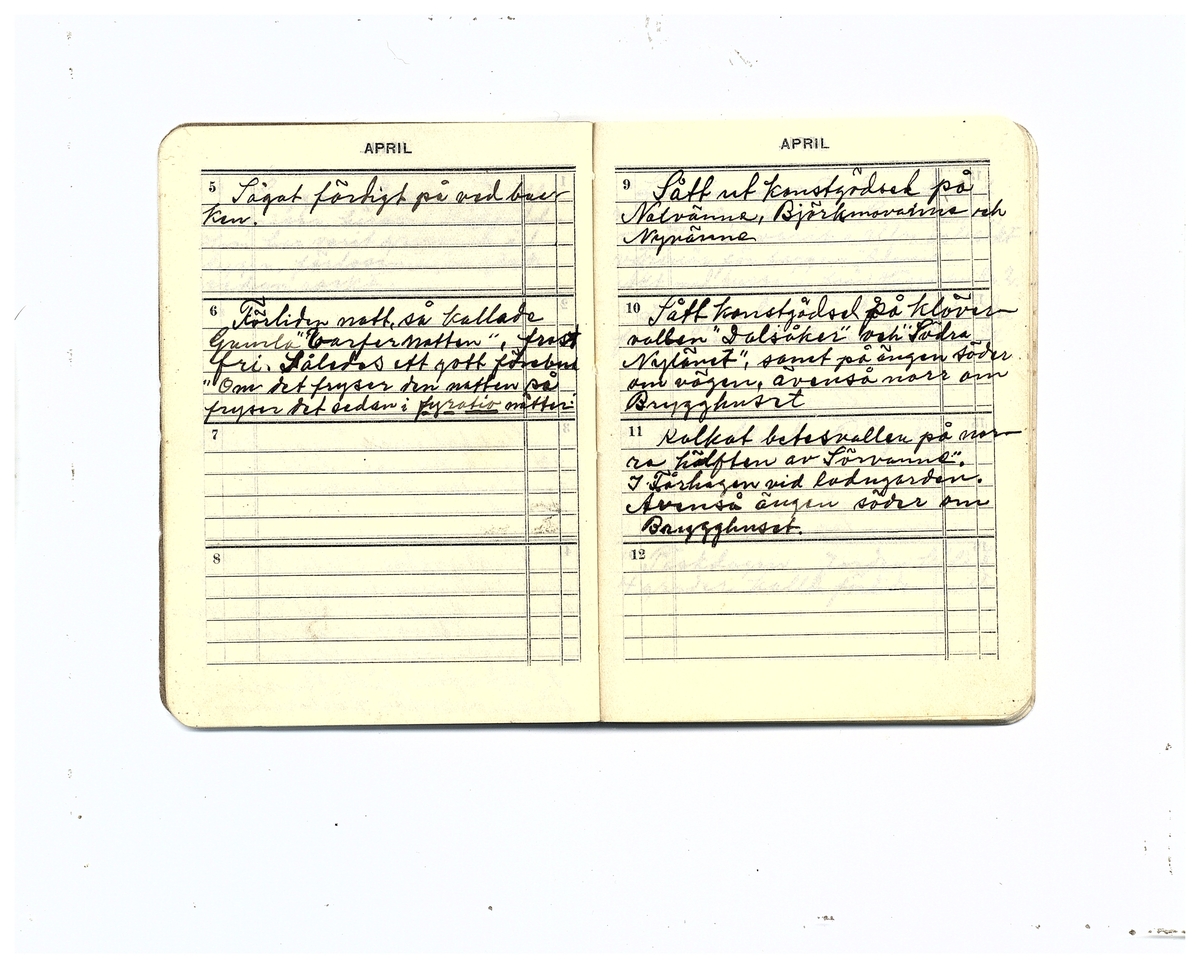 APRIL
5 Sågat färdigt på ved bac-
ken.
6 Förliden natt, så kallade
Gamla "Varfernatten", frost
fri. Således ett gott förebud
"Om det fryser den natten så
fryser det sedan i fyratio nätter"
7
8
APRIL
9 Sått ut konstgödsel på
Nolvänna, Björkmovänna och
Nyvänna
10 Sått konstgödsel på klöver-
vallen "Dalsåker" och "Södra
", samt på ängen söder
om vägen, ävenså norr om
Brygghuset
11 Kalkat betesvallen på nor-
ra hälften av Sörvänna".
I Fårhagen vid ladugården.
Ävenså ängen söder om
Brygghuset.
12